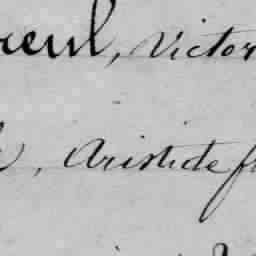 reul, Victor
, Aristide f